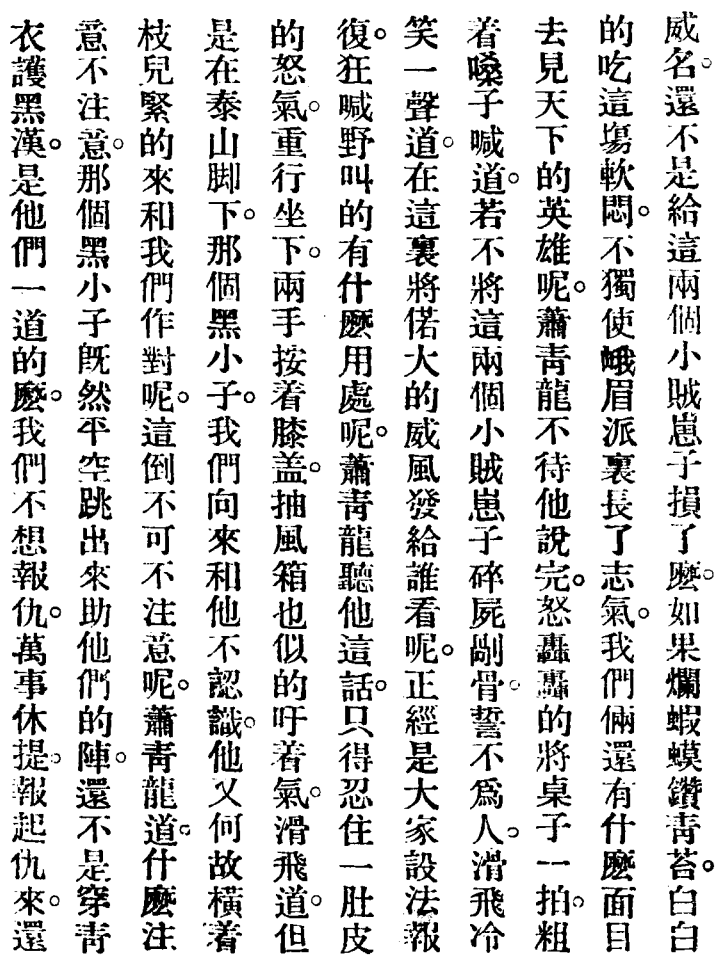 威名。還不是給這兩個小賊崽子損了麽。如果爛蝦蟆鑽靑苔。白白
的吃這場軟悶。不獨使峨眉派裏長了志氣。我們倆還有什麽面目
去見天下的英雄呢。蕭靑龍不待他說完。怒轟轟的將桌子一拍。粗
着嗓子喊道。若不將這兩個小賊崽子碎屍剮骨。誓不爲人。滑飛冷
笑一聲道。在這裏將偌大的威風發給誰看呢。正經是大家設法報
復。狂喊野叫的有什麽用處呢。蕭靑龍聽他這話。只得忍住一肚皮
的怒氣。重行坐下。兩手按着膝盖。抽風箱也似的吁着氣。滑飛道。但
是在泰山脚下。那個黑小子。我們向來和他不認識。他又何故橫着
枝兒緊的來和我們作對呢。這倒不可不注意呢。蕭靑龍道。什麽注
意不注意。那個黑小子旣然平空跳出來助他們的陣。還不是穿靑
衣護黑漢。是他們一道的麽。我們不想報仇。萬事休提。報起仇來。還